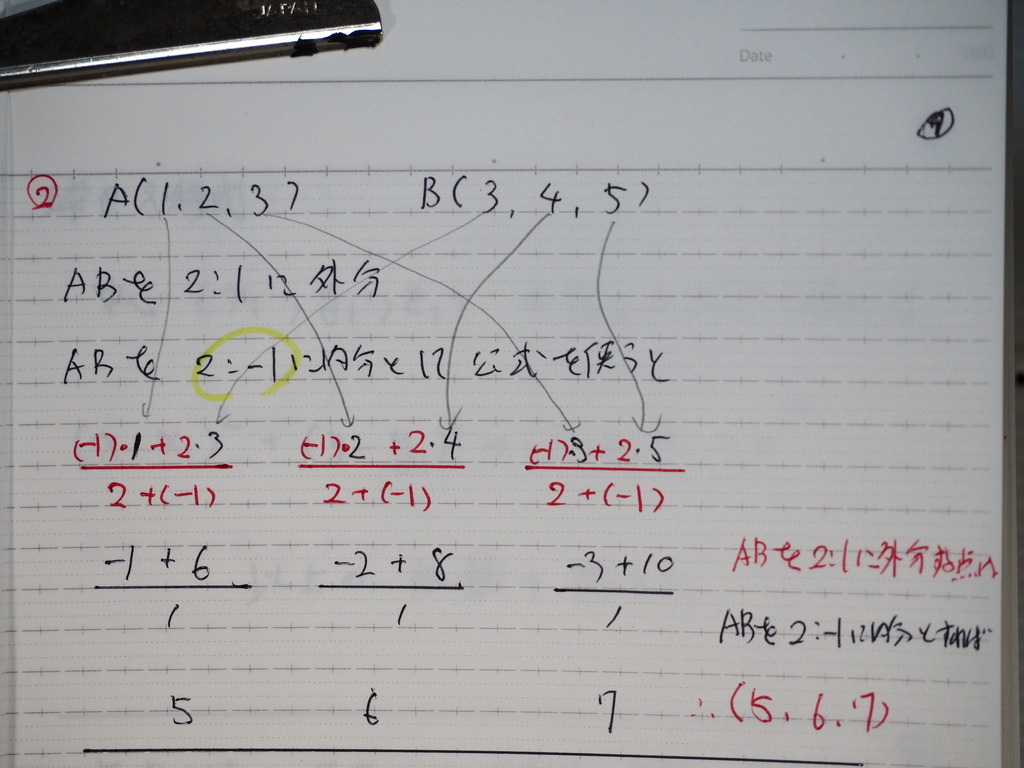 Date
② A(1, 2, 3) B(3, 4, 5)
ABを 2:1に外分
ABを 2:-1に内分として 公式を使うと
(-1)・1+2・3 (-1)・2+2・4 (-1)・3+2・5
2+(-1) 2+(-1) 2+(-1)
-1+6 -2+8 -3+10
1 1 1
ABを2:1に外分する点は
ABを2:-1に内分とすれば
5 6 7 ∴(5, 6, 7)